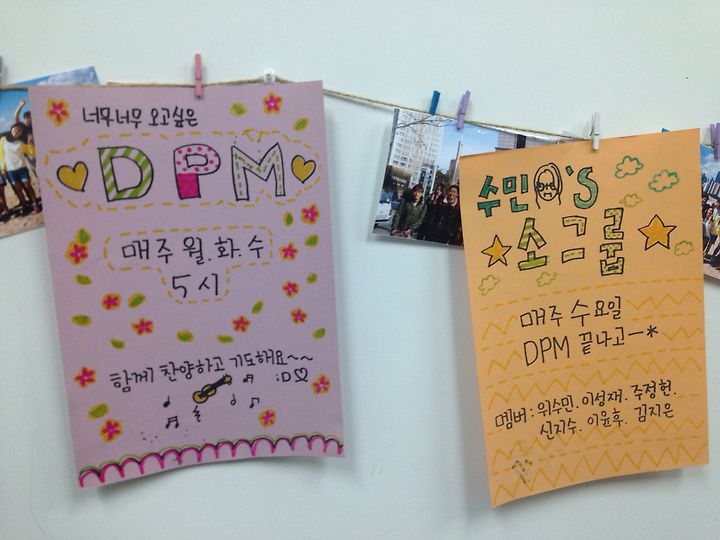 너무너무 오고싶은
DPM
매주 월.화.수
5시
함께 찬양하고 기도해요~~
:D♡
수민'S
소그룹
매주 수요일
DPM 끝나고-*
멤버: 위수민. 이성재. 주정현.
신지수. 이윤후. 김지은